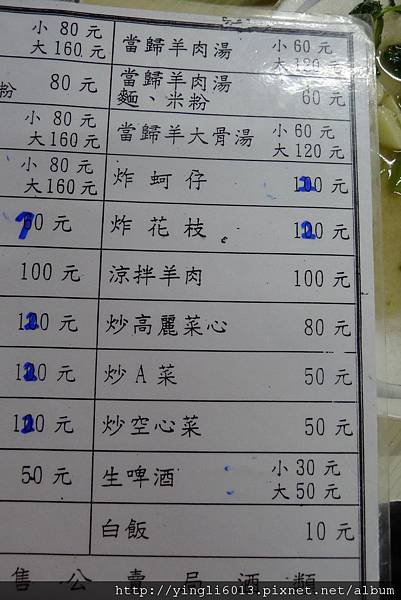 小 80 元
大 160 元
當歸羊肉湯 小 60 元
大 120 元
粉 80 元
當歸羊肉湯
麵、米粉 60 元
小 80 元
大 160 元
當歸羊大骨湯 小 60 元
大 120 元
小 80 元
大 160 元
炸蚵仔 120 元
70 元
炸花枝 120 元
100 元
涼拌羊肉 100 元
120 元
炒高麗菜心 80 元
120 元
炒A菜 50 元
120 元
炒空心菜 50 元
50 元
生啤酒 小 30 元
大 50 元
白飯 10 元
售公賣局酒類
http://yingli6013.pixnet.net/album